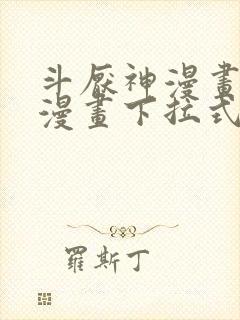 斗厭神漫畫
漫畫下拉式
羅斯丁